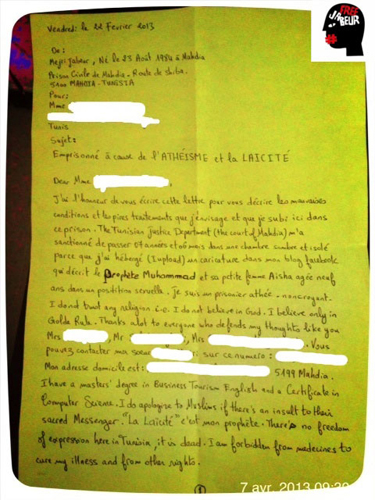 FREE
JABEUR
#
Vendredi le 22 Fevrier 2013
De:
Mejri Jabeur, Né le 25 Août 1984 à Mahdia
Prison Civile de Mahdia - Route de chiba.
5100 MAHDIA - TUNISIA
Pour:
Mme
Tunis
Sujet:
Emprisonné à cause de l'ATHÉISME et la LAICITÉ
Dear Mme
J'ai l'honneur de vous écrire cette lettre pour vous décrire les mauvaises
conditions et les pires traitements que j'envisage et que je subis ici dans
ce prison. The Tunisian justice Department (the court of Mahdia) m'a
sanctionné de passer 07 années et 06 mois dans une chambre sombre et isolé
parce que j'ai hébergé (I upload) un caricature dans mon blog facebook
qui décrit le prophète Muhammad et sa petite femme Aisha agée neuf
ans dans un position sexuelle. Je suis un prisonier athée - noncroyant.
I do not trust any religion i.e. I do not believe in God. I believe only in
Golde Rule. Thanks alot to everyone who defends my thoughts like you
Mrs Mr Mrs . Vous
pouvez contacter mon soeur si sur ce numero:
Mon adresse domicile est: 5199 Mahdia.
I have a masters' degree in Business Tourism English and a Certificate in
Computer Science. I do apologise to Muslims if there's an insult to their
sacred Messenger. "La Laïcité" c'est mon prophète. There's no freedom
of expression here in Tunisia, it is dead. I am forbidden from medecines to
cure my illness and from other rights.
1
7 avr. 2013 09:20